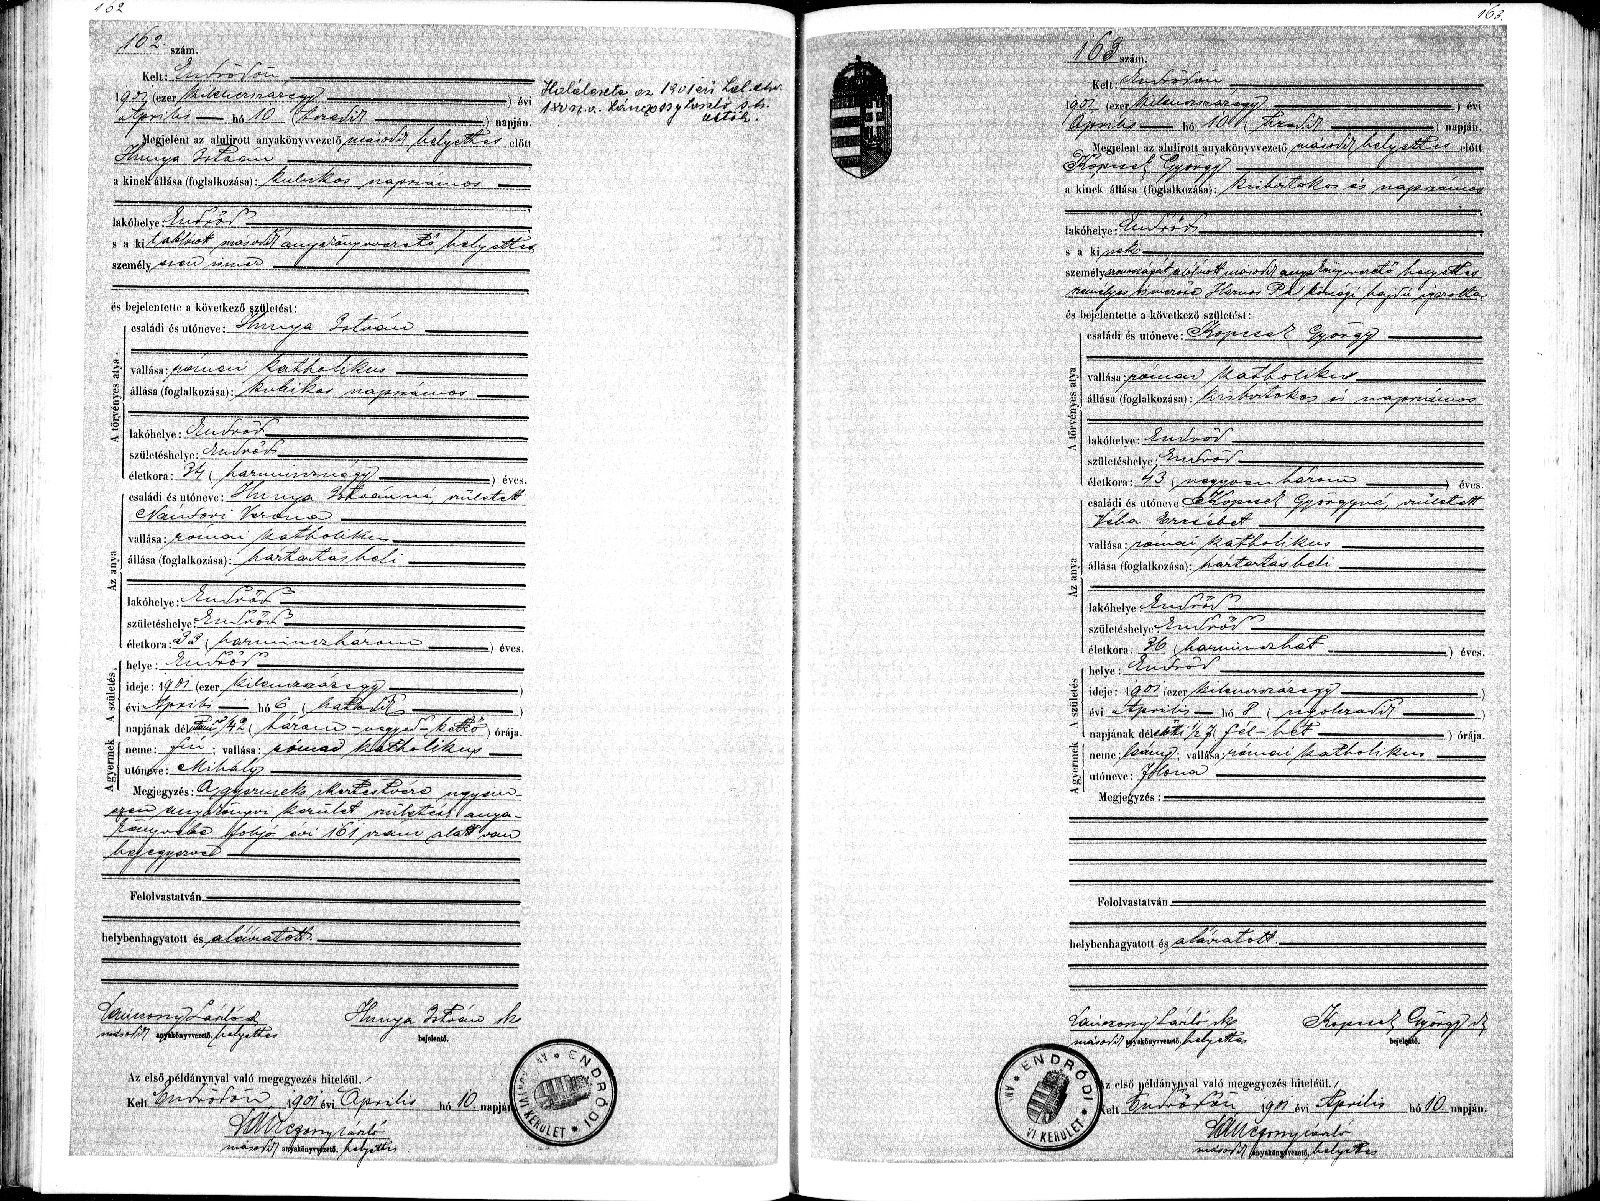 162
162 szám.
Kelt: Endrődön
1901 (ezer kilenczszázegy) évi
Április hó 10 (tizedik) napján.
Megjelent az alulirott anyakönyvvezető második helyettes előtt
Hunya István
a kinek állása (foglalkozása): kubikos napszámos
lakóhelye: Endrőd
s a ki t alólirott második anyakönyvvezető helyettes
személyesen ismer
és bejelentette a következő születést:
A törvényes atya
családi és utóneve: Hunya István
vallása: római katholikus
állása (foglalkozása): kubikos napszámos
lakóhelye: Endrőd
születéshelye: Endrőd
életkora: 34 (harmincznégy) éves.
Az anya
családi és utóneve: Hunya Istvánné, született
Nándori Verona
vallása: római katholikus
állása (foglalkozása): háztartásbeli
lakóhelye: Endrőd
születéshelye: Endrőd
életkora: 33 (harminczhárom) éves.
A születés
helye: Endrőd
ideje: 1901 (ezer kilenczszázegy)
évi Április hó 6 (hatodik)
napjának dél (három-negyed-kettő) órája.
A gyermek
neme: fiú; vallása: római katholikus
utóneve: Mihály
Megjegyzés: A gyermek ikertestvére ugyan-
ezen anyakönyvi kerület születési anya-
könyvébe folyó évi 161 szám alatt van
bejegyezve
Felolvastatván
helybenhagyatott és aláiratott
Lánczony László
második anyakönyvvezető, helyettes
Hunya István sk
bejelentő.
Az első példánynyal való megegyezés hiteléül.
Kelt Endrődön 1901 évi Április hó 10. napján
Lánczony László
második anyakönyvvezető, helyettes
Halálesete az 1901 évi hal.
László s. k.
ENDRŐDI
KERÜLET
163.
163 szám.
Kelt: Endrődön
1901 (ezer kilenczszázegy) évi
Április hó 10 (tizedik) napján.
Megjelent az alulirott anyakönyvvezető második helyettes előtt
Kopcsek György
a kinek állása (foglalkozása): kisbirtokos és napszámos
lakóhelye: Endrőd
s a ki nek
személyazonosságát alólirott második anyakönyvvezető helyettes
személyes ismerőse Harnos Pál községi hajdú igazolta
és bejelentette a következő születést:
A törvényes atya
családi és utóneve: Kopcsek György
vallása: római katholikus
állása (foglalkozása): kisbirtokos és napszámos
lakóhelye: Endrőd
születéshelye: Endrőd
életkora: 43 (negyvenhárom) éves.
Az anya
családi és utóneve Kopcsek Györgyné, született
Véha Erzsébet
vallása: római katholikus
állása (foglalkozása): háztartásbeli
lakóhelye Endrőd
születéshelye Endrőd
életkora: 36 (harminczhat) éves.
A születés
helye: Endrőd
ideje: 1901 (ezer kilenczszázegy)
évi Április hó 8 (nyolczadik)
napjának délelőtti ½7 (fél-hét) órája.
A gyermek
neme: leány; vallása: római katholikus
utóneve: Ilona
Megjegyzés:
Felolvastatván
helybenhagyatott és aláiratott
Lánczony László sk
második anyakönyvvezető, helyettes
Kopcsek György sk
bejelentő.
Az első példánynyal való megegyezés hiteléül.
Kelt Endrődön 1901 évi Április hó 10. napján.
Lánczony László
második anyakönyvvezető, helyettes
ENDRŐDI
KERÜLET